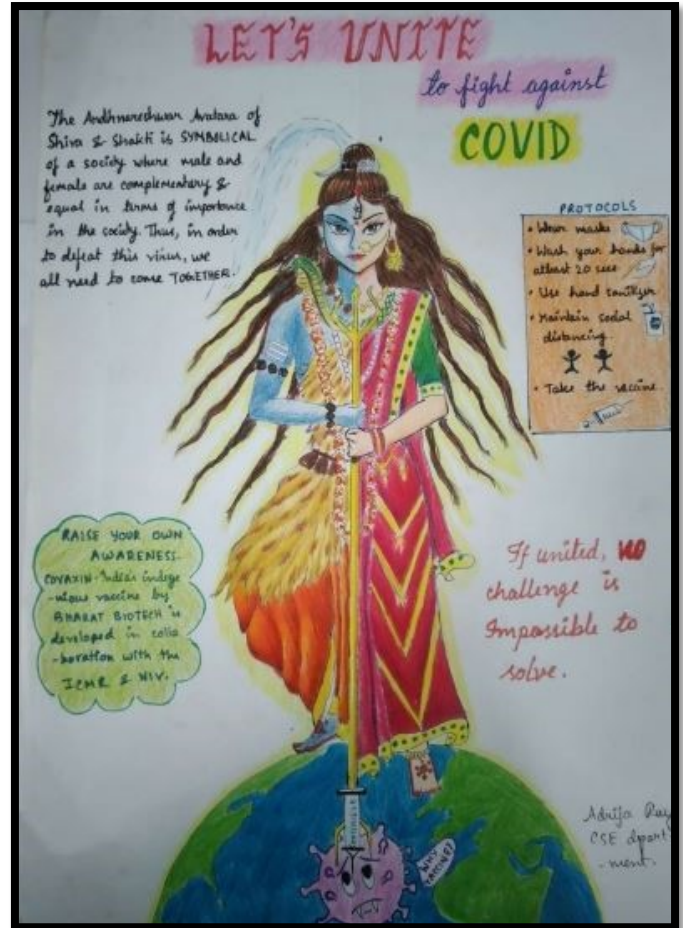 LET'S UNITE
to fight against
COVID
The Ardhnareshwar Avatara of
Shiva & Shakti is SYMBOLICAL
of a society where male and
female are complementary &
equal in terms of importance
in the society. Thus, in order
to defeat this virus, we
all need to come TOGETHER.
PROTOCOLS
• Wear masks
• Wash your hands for
atleast 20 secs
• Use hand sanitizer
• Maintain social
distancing
• Take the vaccine.
RAISE YOUR OWN
AWARENESS.
COVAXIN-India's indige
-nious vaccine by
BHARAT BIOTECH is
developed in colla
-boration with the
ICMR & NIV.
If united, NO
challenge is
Impossible to
solve.
WHY
VACCINE?
Adrija Ray
CSE depart
-ment.